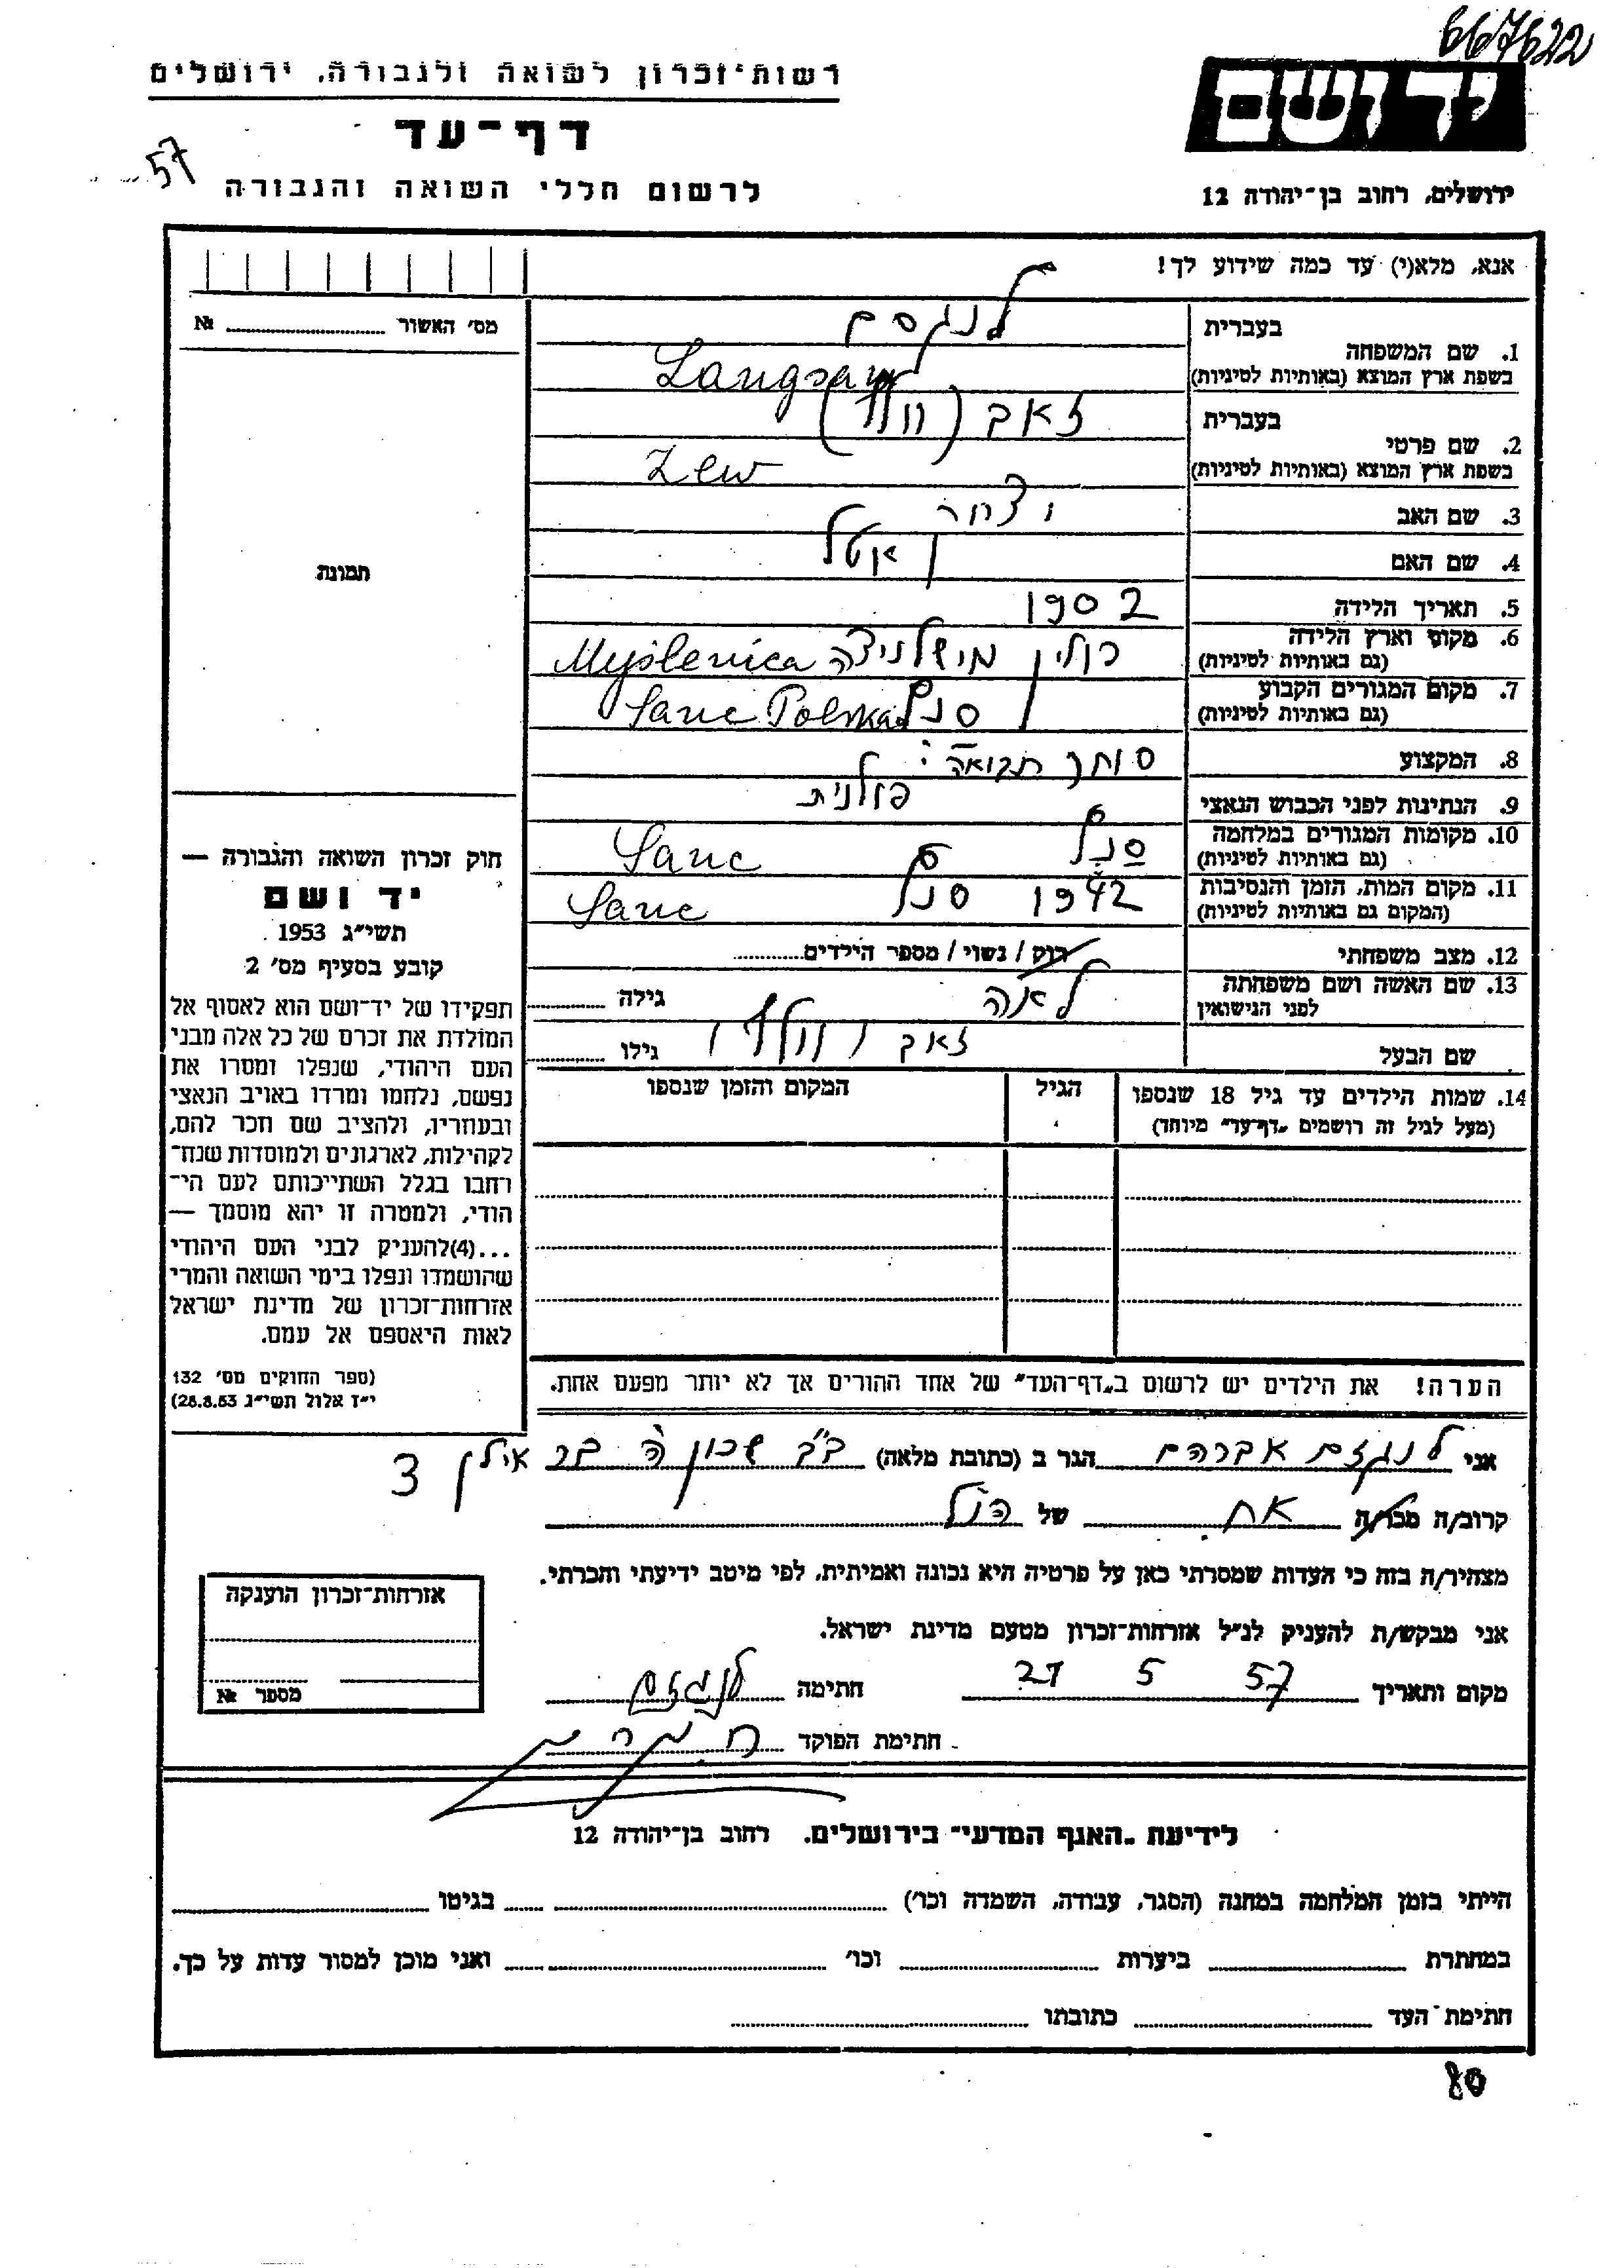 667622
רשות־זכרון לשואה ולגבורה, ירושלים
יד ושם
דף־עד
57
לרשום חללי השואה והגבורה
ירושלים, רחוב בן־יהודה 12
אנא, מלא(י) עד כמה שידוע לך!
מס' האשור № 
1. שם המשפחה
בעברית לנגסם
בשפת ארץ המוצא (באותיות לטיניות) Langsam
2. שם פרטי
בעברית זאב (וולף)
בשפת ארץ המוצא (באותיות לטיניות) Zew
3. שם האב יצחק
4. שם האם אטל
5. תאריך הלידה 1902
6. מקום וארץ הלידה
(גם באותיות לטיניות) פולין מישלניצה Myślenica
7. מקום המגורים הקבוע
(גם באותיות לטיניות) סנץ Sanc Polska
8. המקצוע סוחר תבואה
9. הנתינות לפני הכבוש הנאצי פולנית
10. מקומות המגורים במלחמה
(גם באותיות לטיניות) סנץ Sanc
11. מקום המות, הזמן והנסיבות
(המקום גם באותיות לטיניות) 1942 סנץ Sanc
12. מצב משפחתי רווק / נשוי / מספר הילדים
13. שם האשה ושם משפחתה
לפני הנישואין לאה גילה
שם הבעל זאב (וולף) גילו
14. שמות הילדים עד גיל 18 שנספו
(מעל לגיל זה רושמים „דף־עד" מיוחד)
הגיל
המקום והזמן שנספו
תמונה
חוק זכרון השואה והגבורה —
יד ושם
תשי"ג 1953
קובע בסעיף מס' 2
תפקידו של יד־ושם הוא לאסוף אל
המולדת את זכרם של כל אלה מבני
העם היהודי, שנפלו ומסרו את
נפשם, נלחמו ומרדו באויב הנאצי
ובעוזריו, ולהציב שם וזכר להם,
לקהילות, לארגונים ולמוסדות שנח־
רחבו בגלל השתייכותם לעם הי־
הודי, ולמטרה זו יהא מוסמך —
...(4)להעניק לבני העם היהודי
שהושמדו ונפלו בימי השואה והמרי
אזרחות־זכרון של מדינת ישראל
לאות היאספם אל עמם.
(ספר החוקים מס' 132
י"ז אלול תשי"ג 28.8.53)
הערה! את הילדים יש לרשום ב„דף־העד" של אחד ההורים אך לא יותר מפעם אחת.
אני לנגזם אברהם הגר ב (כתובת מלאה) ב"ב שכון ה' בר אילן 3
קרוב/ה מכר/ה אח של הנ"ל
מצהיר/ה בזה כי העדות שמסרתי כאן על פרטיה היא נכונה ואמיתית, לפי מיטב ידיעתי והכרתי.
אני מבקש/ת להעניק לנ"ל אזרחות־זכרון מטעם מדינת ישראל.
מקום ותאריך 57 5 27 חתימה לנגזם
חתימת הפוקד
אזרחות־זכרון הוענקה
מספר №
לידיעת „האגף המדעי" בירושלים, רחוב בן־יהודה 12
הייתי בזמן המלחמה במחנה (הסגר, עבודה, השמדה וכו') בגיטו
במחתרת ביערות וכו' ואני מוכן למסור עדות על כך.
חתימת העד כתובתו
80